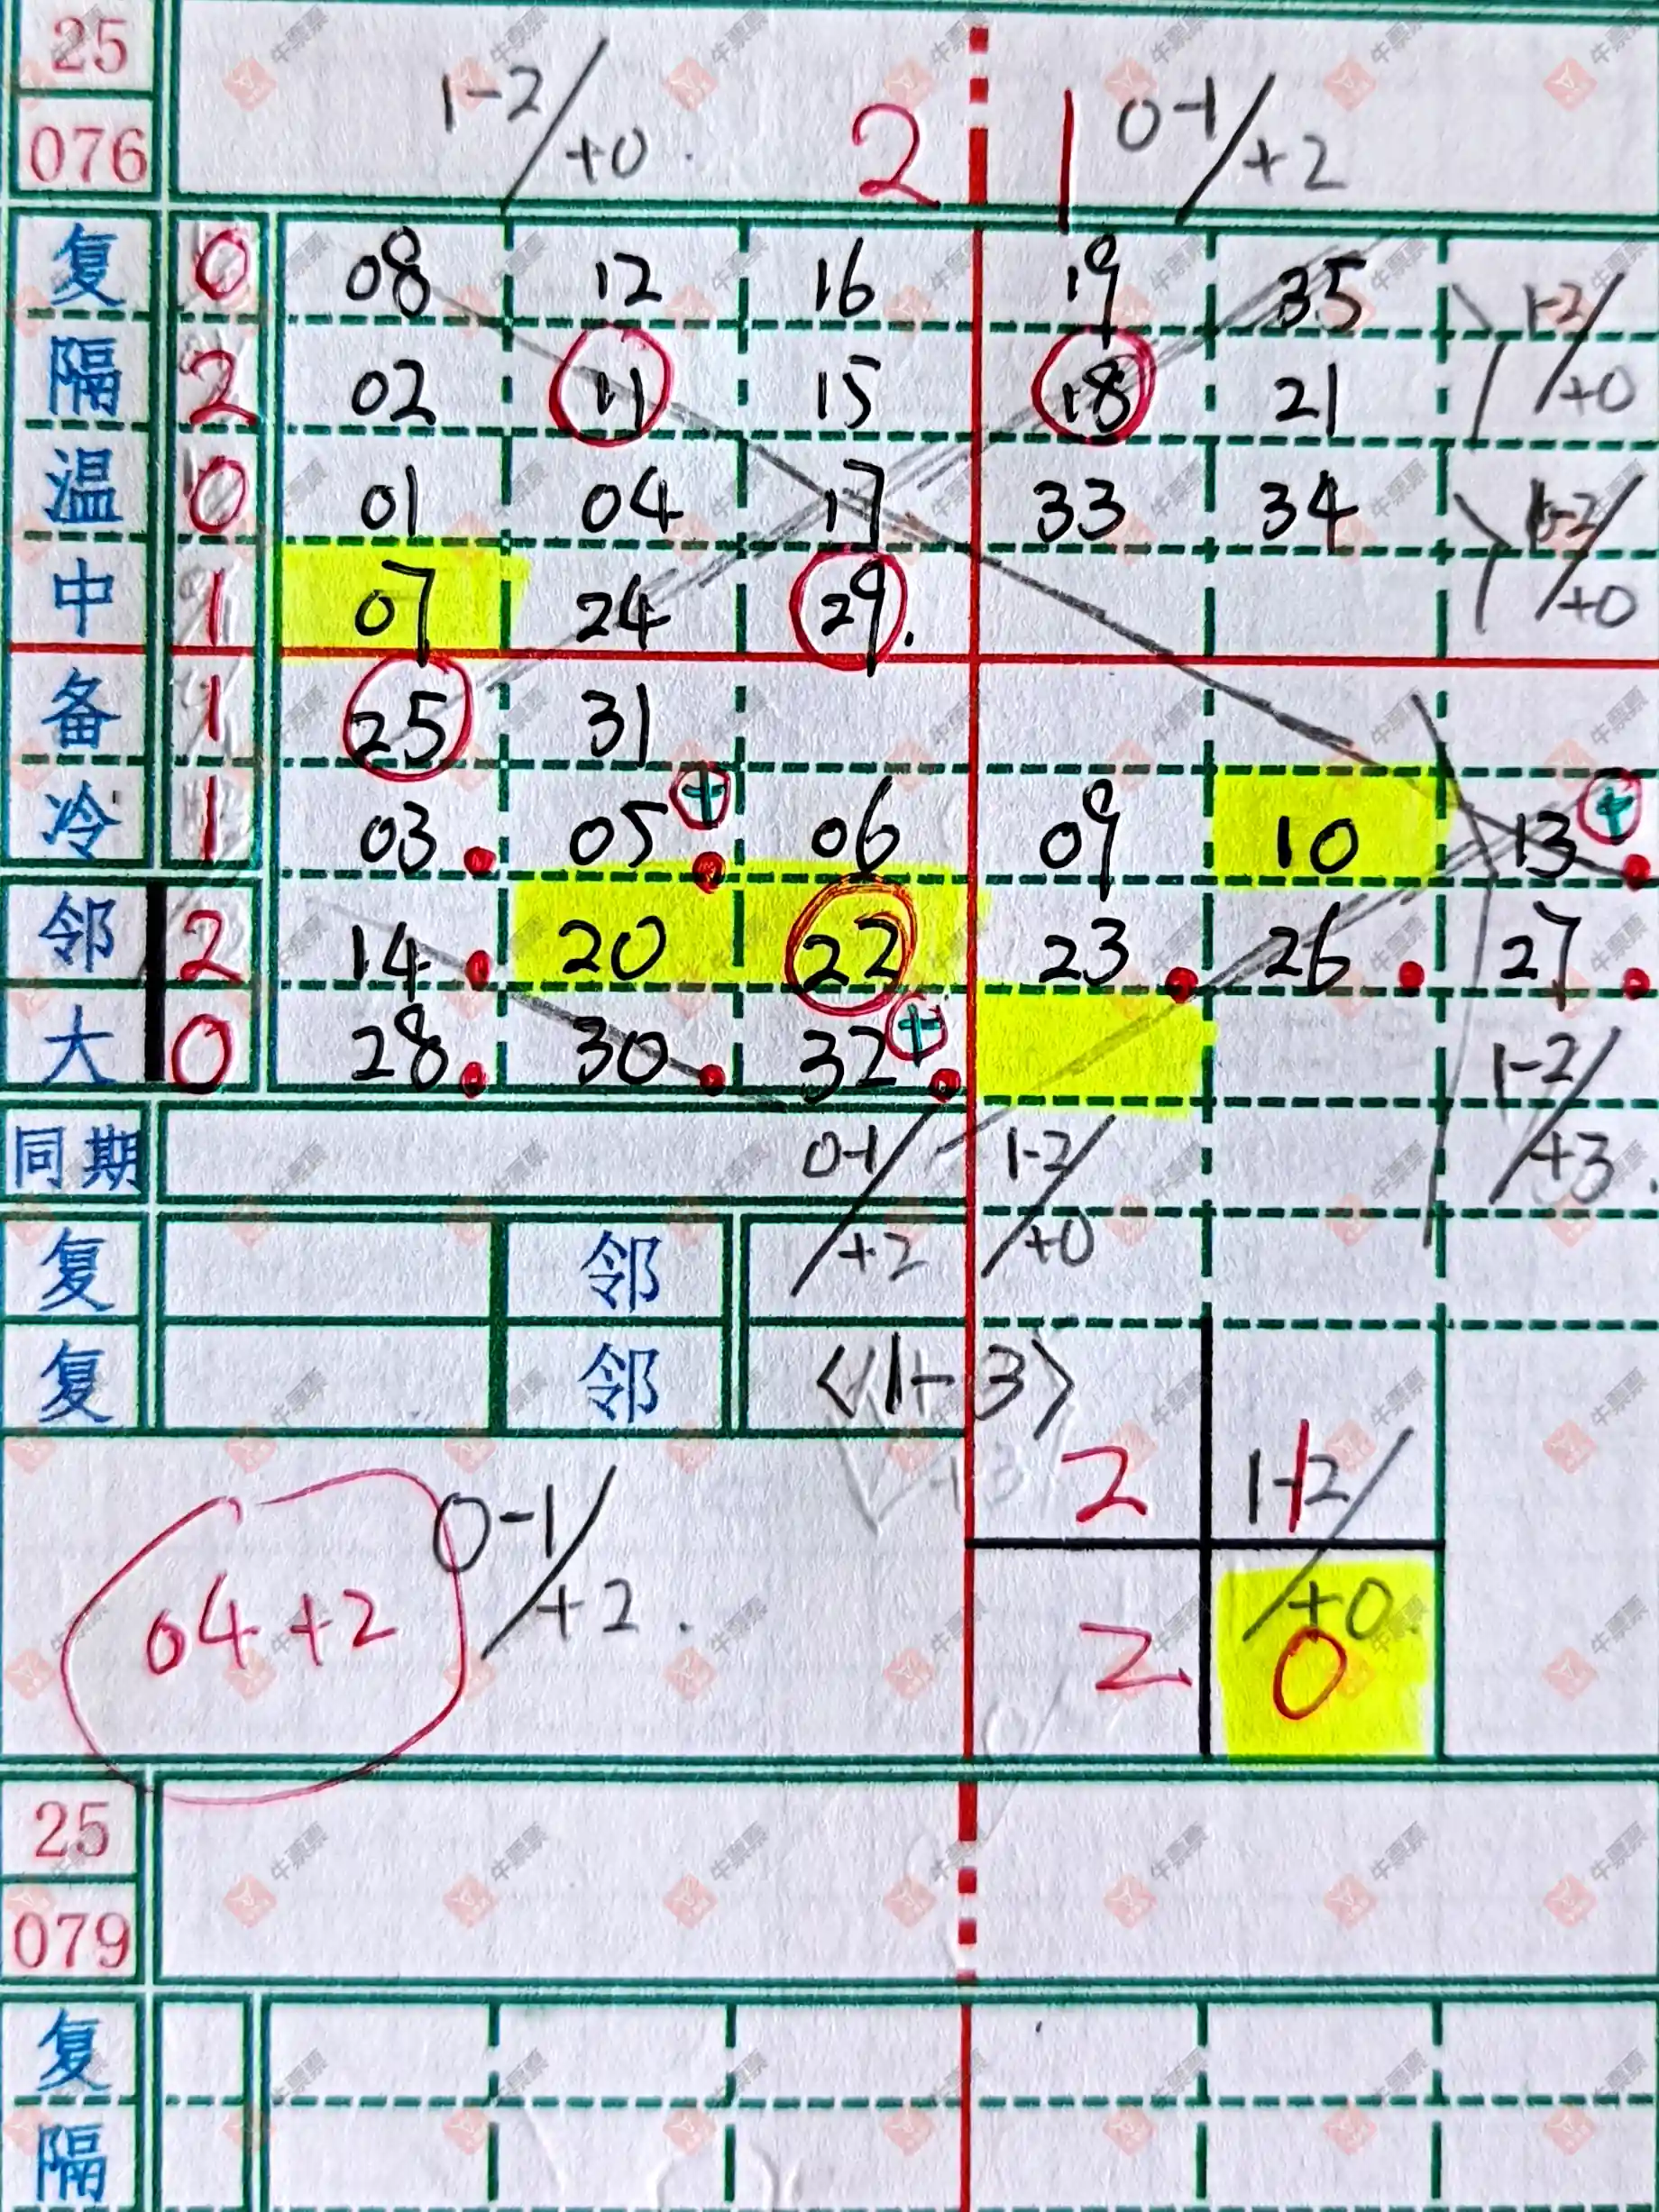 25
076
1-2/+0. 2 1 0-1/+2
复 0 08 12 16 19 35 1-2/+0
隔 2 02 11 15 18 21
温 0 01 04 17 33 34 1-2/+0
中 1 07 24 29.
备 1 25 31
冷 1 03 05 + 06 09 10 13 +
邻 2 14 20 22 23 26 27
大 0 28 30 32 + 1-2/+3.
同期 0-1/+2 1-2/+0
复 邻
复 邻 <1-3>
2 1-2/+0. 1
04+2 0-1/+2.
2 0
25
079
复
隔
牛票票